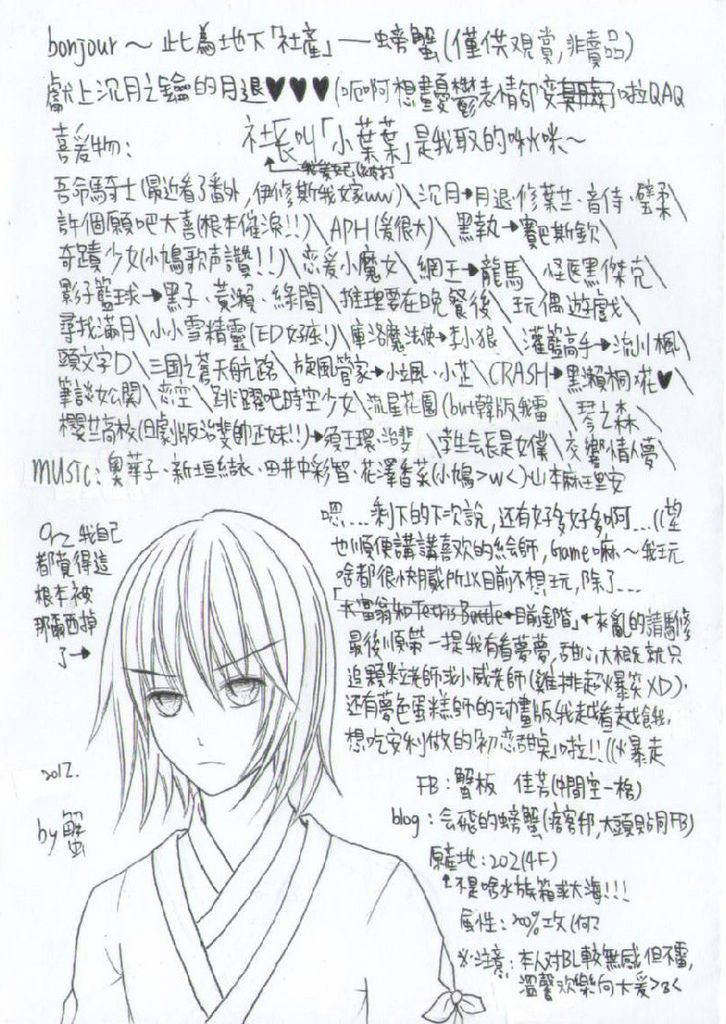 bonjour～此為地下「社產」——螃蟹(僅供观賞,非賣品)
獻上沉月之鑰的月退♥♥♥(呃啊想畫憂鬱表情卻變臭臉了啦QAQ
喜爱物:
社長叫「小葉葉」是我取的咻咪～
吾命騎士(最近看了番外,伊修斯我嫁ww)\沉月→月退·修葉兰·音侍·璧柔\
許個願吧大喜(根本催淚!!)\APH(爱很大)\黑執→賽巴斯欽\
奇蹟少女(小鳩歌声讚!!)\恋爱小魔女\網王→龍馬\怪医黑傑克\
影子籃球→黑子·黃瀨·綠間\推理要在晚餐後\玩偶遊戲\
尋找滿月\小小雪精靈(ED好听!)\庫洛魔法使→李小狼\灌籃高手→流川楓\
頭文字D\三國之蒼天航路\旋風管家→小颯·小芷\CRASH→黑瀨桐\♥\
筆談女公関\恋空\跳躍吧時空少女\流星花園(but韓版我雷\琴之森\
櫻兰高校(日劇版治斐帥正妹!!)→須王環·治斐\学生会長是女僕\交響情人夢\
MUSIC:奧華子·新垣結衣·田井中彩智·花澤香菜(小鳩>w<)·山本麻里安
orz我自己
都覺得這
根本被
那爾西掉
了→
嗯....剩下的下次說,还有好多好多啊...((望
也順便講講喜欢的絵師,Game嘛～我玩
啥都很快膩所以目前不想玩,除了....
「大富翁和Tetris Battle★目前銀階」←來亂的請駡修
最後順帶一提我有看夢夢,甜心大概就只
追顆粒老師或小威老師(雞排超爆笑XD).
还有夢色蛋糕師的动畫版我越看越餓,
想吃安利做的初恋甜桌啦!!((爆走
FB:蟹板 佳芳(中間空一格)
blog:会飛的螃蟹(痞客邦,大頭貼同FB)
原產地:202(4F)
↑不是啥水族箱或大海!!!
属性:200%攻(何?
※注意:本人对BL較無感但不雷,
溫馨欢樂向大爱>3<
2012.
by蟹